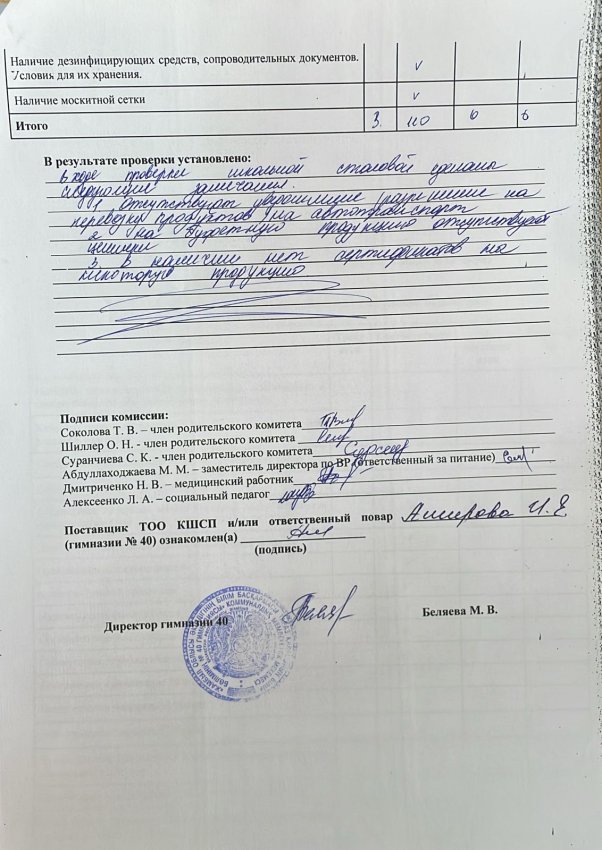 Наличие дезинфицирующих средств, сопроводительных документов. v
Условия для их хранения.
Наличие москитной сетки v
Итого 3.
В результате проверки установлено:
в ходе проверки школьной столовой сделаны
следующие замечания.
1. Отсутствуют разрешение на
перевозки продуктов на автотранспорт
2 на буфетную продукцию отсутствуют
ценники
3. В наличии нет сертификатов на
некоторую продукцию
Подписи комиссии:
Соколова Т. В. – член родительского комитета
Шиллер О. Н. - член родительского комитета
Суранчиева С. К. - член родительского комитета
Абдуллаходжаева М. М. – заместитель директора по ВР (ответственный за питание)
Дмитриченко Н. В. – медицинский работник
Алексеенко Л. А. – социальный педагог
Поставщик ТОО КШСП и/или ответственный повар Амирова И. Е.
(гимназии № 40) ознакомлен(а)
(подпись)
Директор гимназии 40 Беляева М. В.